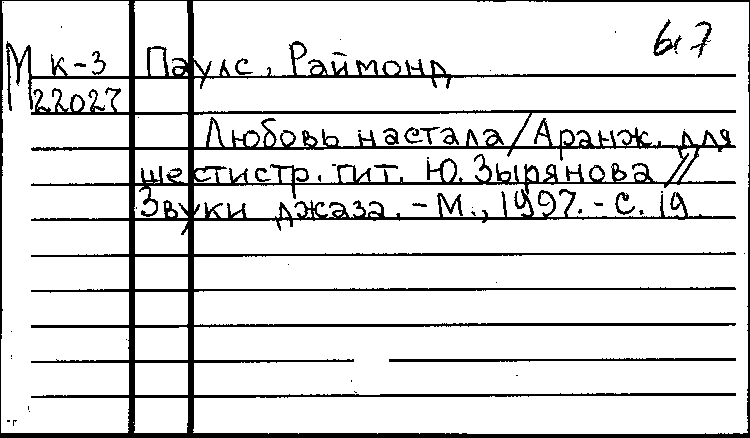 М к-3 Паулс, Раймонд 6.7
22027
Любовь настала / Аранж. для
шестистр. гит. Ю. Зырянова //
Звуки джаза. - М., 1997. - С. 19